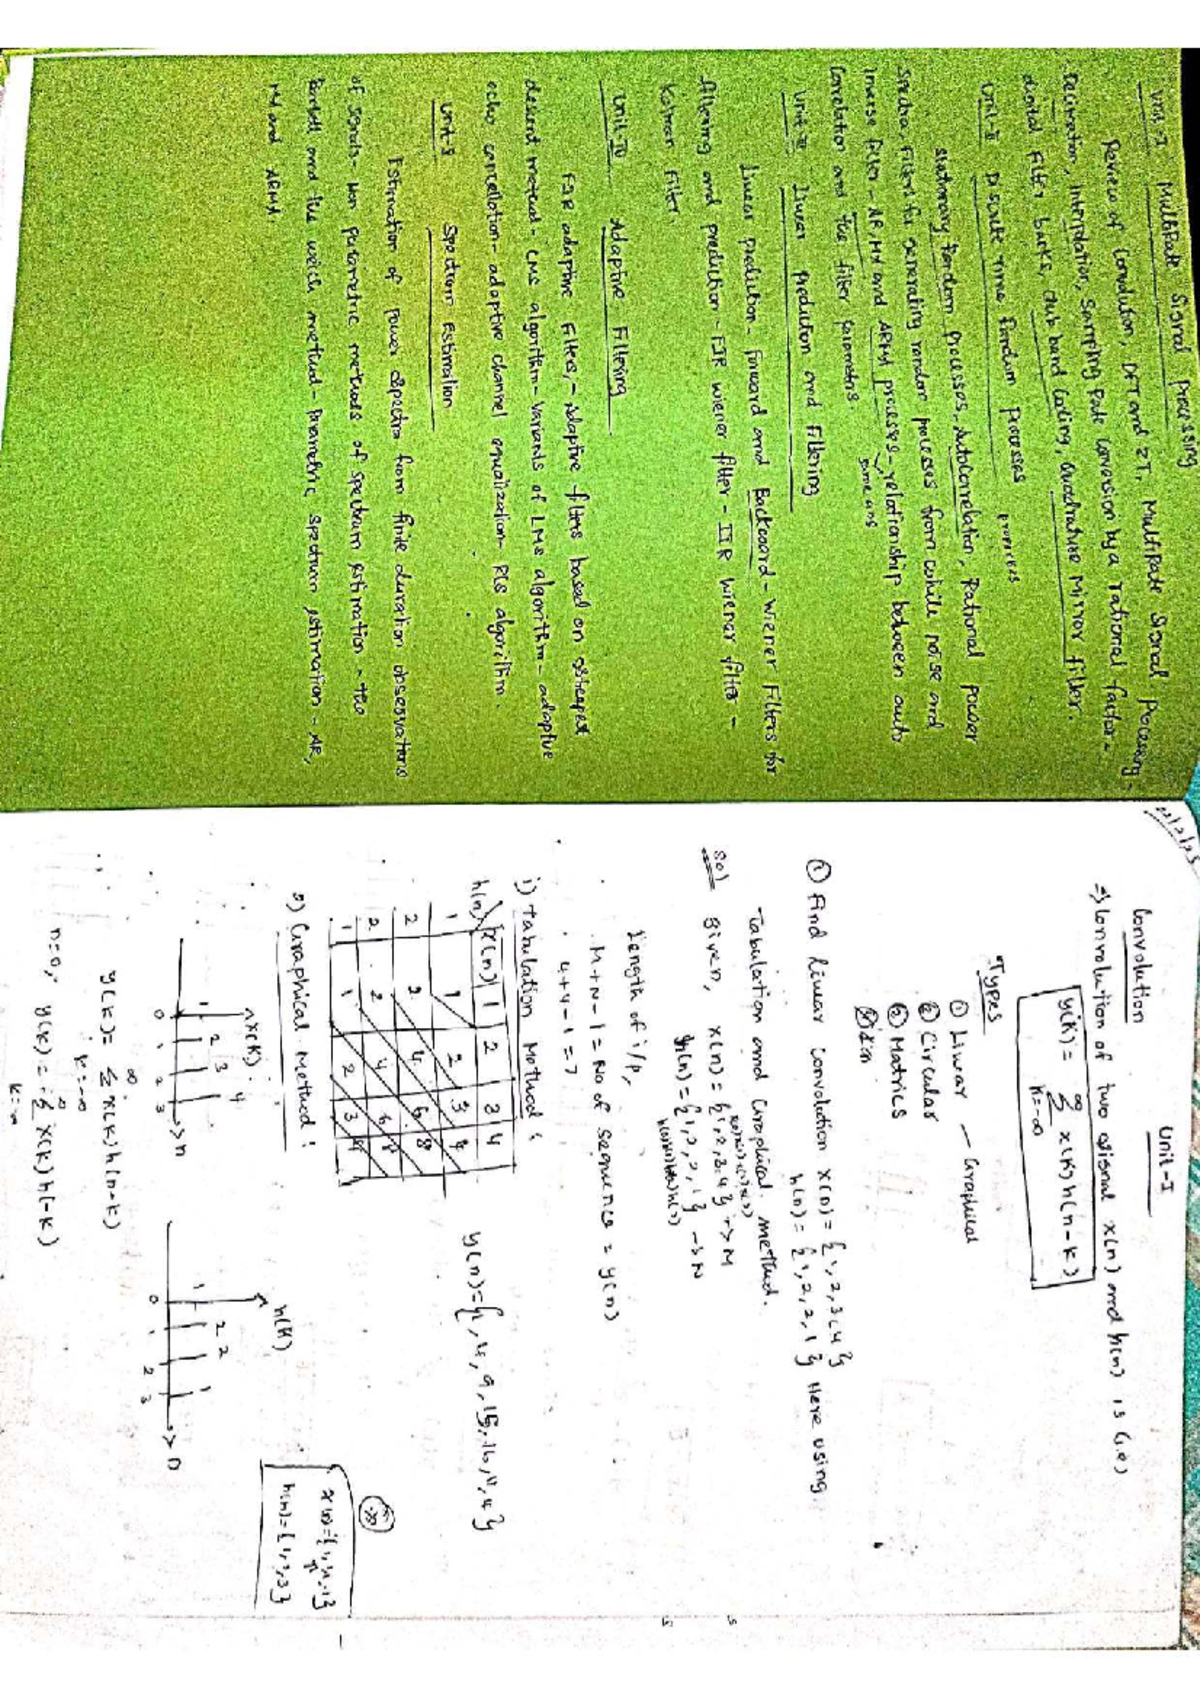 Unit-I Multirate Signal Processing
Review of Convolution, DFT and ZT, Multirate Signal Processing-
Decimation, Interpolation, Sampling Rate Conversion by a rational factor-
digital filter banks, sub band Coding, Quadrature Mirror filter.
Unit-II Discrete time Random Processes
Stationary Random processes, Autocorrelation, Rational Power
Spectra, Filters for generating random processes from while noise and
inverse filter - AR, MA and ARMA processes - relationship between auto
Correlation and the filter parameters.
Unit-III Linear prediction and Filtering
Linear prediction - forward and Backward - Wiener Filters for
filtering and prediction - FIR wiener filter - IIR wiener filter -
Kalman Filter
Unit-IV Adaptive Filtering
FIR adaptive Filters, - Adaptive filters based on steepest
descent method - LMS algorithm - Variants of LMS algorithm - adaptive
echo cancellation - adaptive channel equalization - RLS algorithm.
Unit-5 Spectrum Estimation
Estimation of Power Spectra from finite duration observations
of signals - Non parametric methods of spectrum estimation - the
Bartlett and the welch method - Parametric spectrum estimation - AR,
MA and ARMA
Unit-I
Convolution
=> Convolution of two signal x(n) and h(n) is (i.e)
y(k) = ∞ Σ k=-∞ x(k) h(n-k)
Types
① Linear - Graphical
② Circular
③ Matrics
① Find linear convolution x(n) = {1, 2, 3, 4}
h(n) = {1, 2, 2, 1} Here using
Tabulation and Graphical method.
Sol given, x(n) = {1, 2, 3, 4} -> M
h(n) = {1, 2, 2, 1} -> N
Length of i/p,
M+N-1 = No of sequence = y(n)
4+4-1 = 7
i) Tabulation Method:
h(n) x(n) 1 2 3 4
1 1 2 3 4
2 2 4 6 8
2 2 4 6 8
1 1 2 3 4
y(n) = {1, 4, 9, 15, 16, 11, 4}
2) Graphical Method:
x(k)
1 2 3 4
0 1 2 3 n
h(k)
1 2 2 1
0 1 2 3 n
h(n) = {1, 2, 3}
y(k) = ∞ Σ k=-∞ x(k) h(n-k)
n=0; y(k) = ∞ Σ k=-∞ x(k) h(-k)